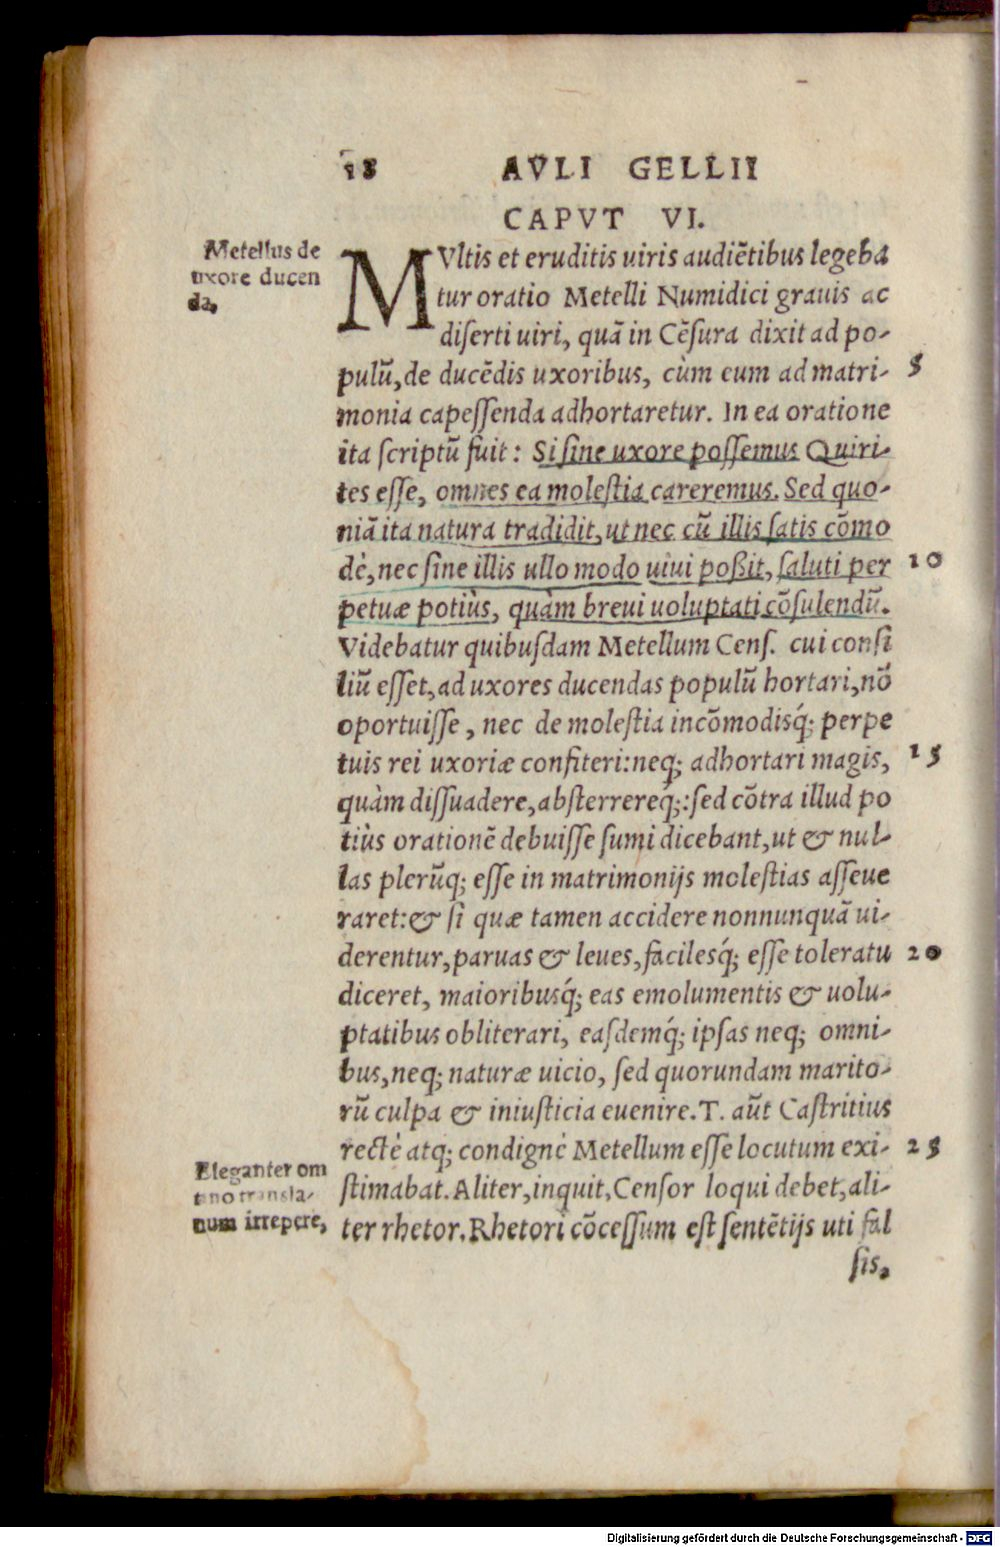 18 AVLI GELLII
CAPVT VI.
Metellus de
uxore ducen
da,
MVltis et eruditis uiris audiētibus legeba
tur oratio Metelli Numidici grauis ac
diserti uiri, quā in Cēsura dixit ad po-
pulū, de ducēdis uxoribus, cùm eum ad matri- 5
monia capessenda adhortaretur. In ea oratione
ita scriptū fuit: Si sine uxore possemus Quiri-
tes esse, omnes ea molestia careremus. Sed quo-
niā ita natura tradidit, ut nec cū illis satis cōmo
dè, nec sine illis ullo modo uiui poßit, saluti per 10
petuæ potiùs, quàm breui uoluptati cōsulendū.
Videbatur quibusdam Metellum Cens. cui consi
liū esset, ad uxores ducendas populū hortari, nō
oportuisse, nec de molestia incōmodisq́; perpe
tuis rei uxoriæ confiteri: neq; adhortari magis, 15
quàm dissuadere, absterrereq́;: sed cōtra illud po
tiùs orationē debuisse sumi dicebant, ut & nul-
las plerūq; esse in matrimonijs molestias asseue
raret: & si quæ tamen accidere nonnunquā ui-
derentur, paruas & leues, facilesq́; esse toleratu 20
diceret, maioribusq́; eas emolumentis & uolu-
ptatibus obliterari, easdemq́; ipsas neq; omni-
bus, neq; naturæ uicio, sed quorundam marito-
rū culpa & iniusticia euenire. T. aūt Castritius
rectè atq; condignè Metellum esse locutum exi- 25
stimabat. Aliter, inquit, Censor loqui debet, ali-
ter rhetor. Rhetori cōcessum est sentētijs uti fal
sis,
Eleganter om
nino transla-
num irrepere,
Digitalisierung gefördert durch die Deutsche Forschungsgemeinschaft - DFG